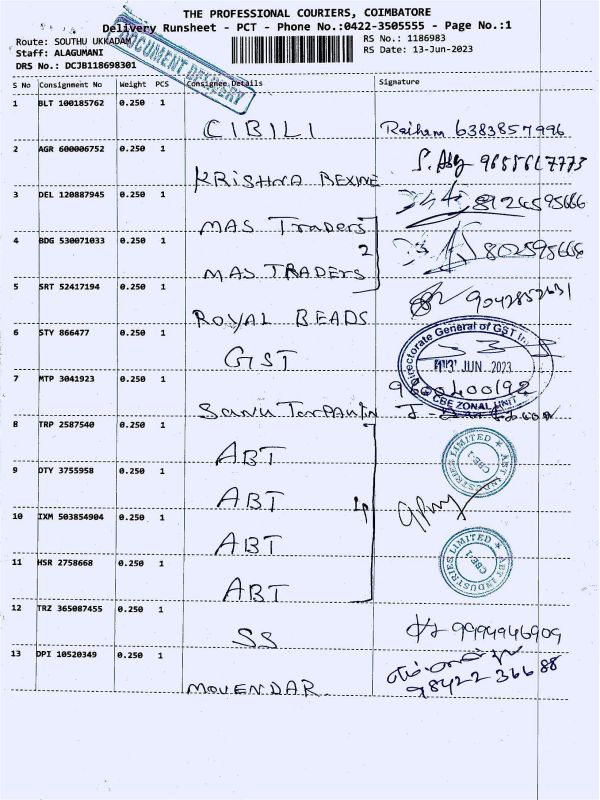 THE PROFESSIONAL COURIERS, COIMBATORE
Delivery Runsheet - PCT - Phone No.:0422-3505555 - Page No.:1
Route: SOUTHU UKKADAM
RS No.: 1186983
Staff: ALAGUMANI
RS Date: 13-Jun-2023
DRS No.: DCJB118698301
DOCUMENT DELIVERY
S No Consignment No Weight PCS Consignee Details Signature
1 BLT 100185762 0.250 1
CIBILI 6383857996
2 AGR 600006752 0.250 1
KRISHNA REXINE
3 DEL 120887945 0.250 1
MAS Traders
4 BDG 530071033 0.250 1
2
MAS TRADERS
5 SRT 52417194 0.250 1
ROYAL BEADS
6 STY 866477 0.250 1
GST
Directorate General of GST
13 JUN 2023
CBE ZONAL UNIT
7 MTP 3041923 0.250 1
8 TRP 2587540 0.250 1
ABT
ABT INDUSTRIES LIMITED
CBE-1
9 DTY 3755958 0.250 1
ABT
4
10 IXM 503854904 0.250 1
ABT
ABT INDUSTRIES LIMITED
CBE-1
11 HSR 2758668 0.250 1
ABT
12 TRZ 365087455 0.250 1
SS 9994946909
13 DPI 10520349 0.250 1
MOVENDAR 98422 36688